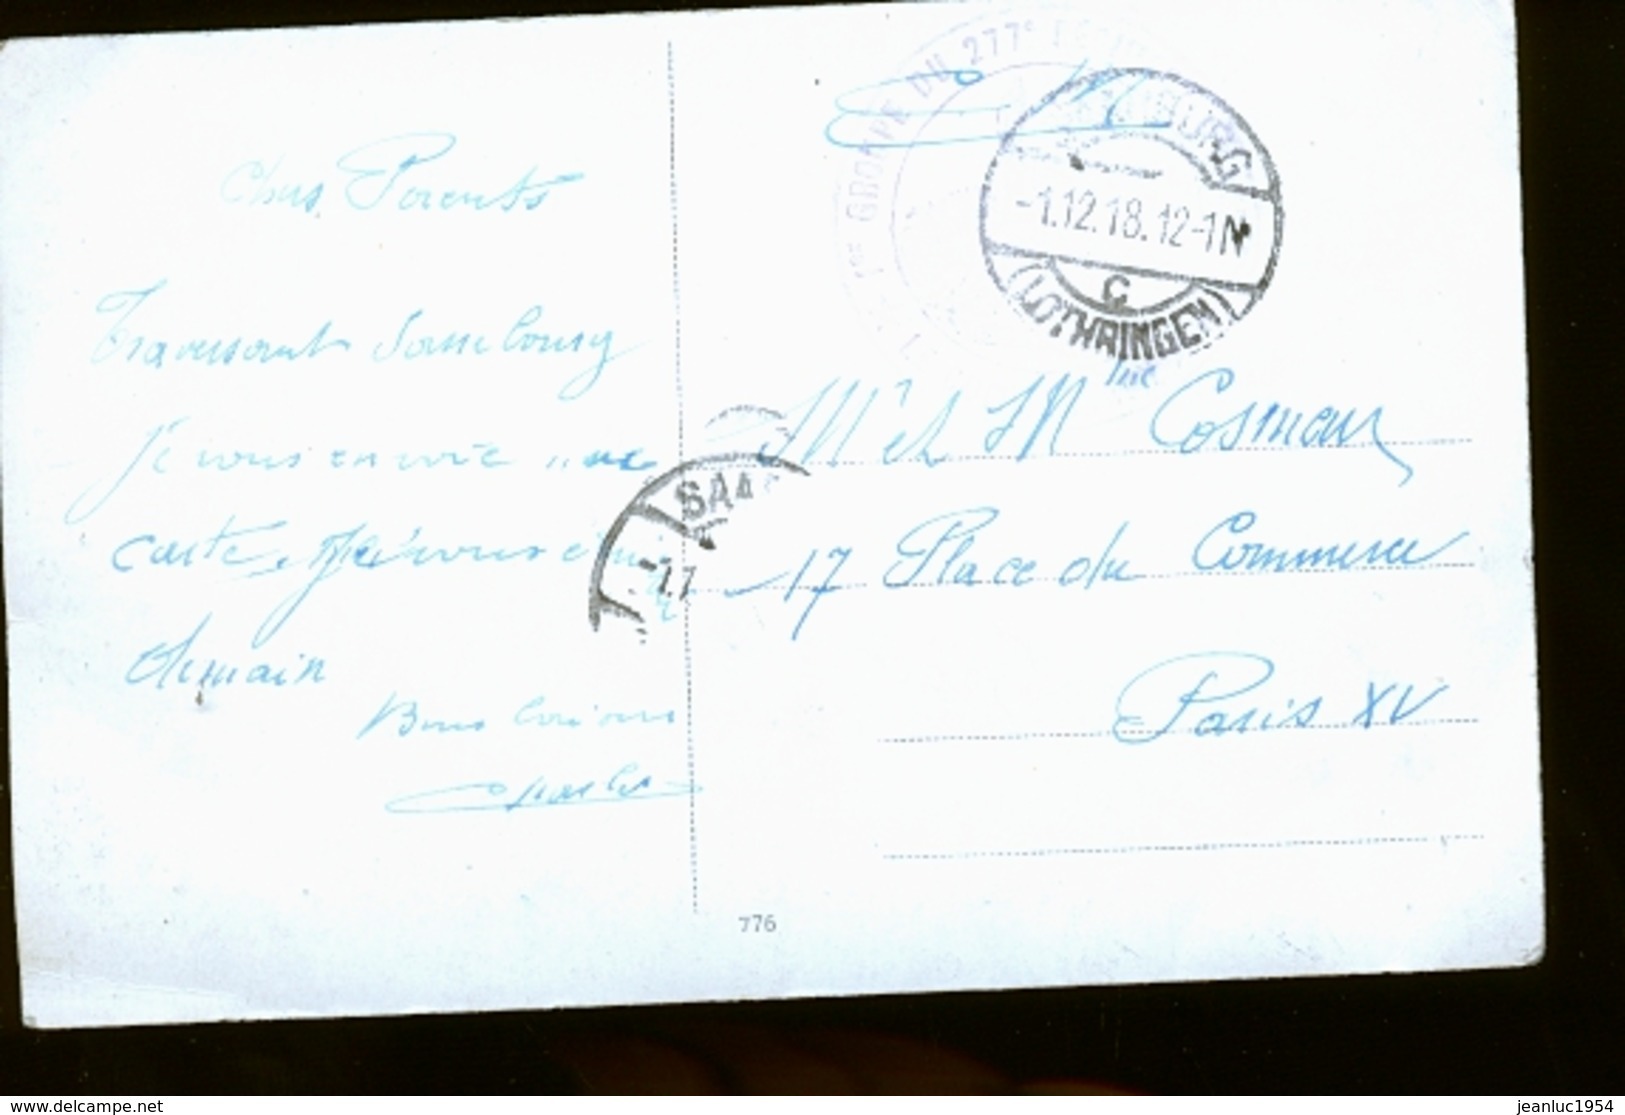 Chers Parents
Traversant Sarrebourg
je vous envoie une
carte, Je vous écrirai
demain
Bons baisers
Charles
1er GROUPE DU 277e
BURG
-1.12.18.12-1N
C
(LOTHRINGEN)
SAA
-1.1
Mr et Mme Cosman
17 Place du Commerce
Paris XV
776
delcampe.net
jeanluc1954